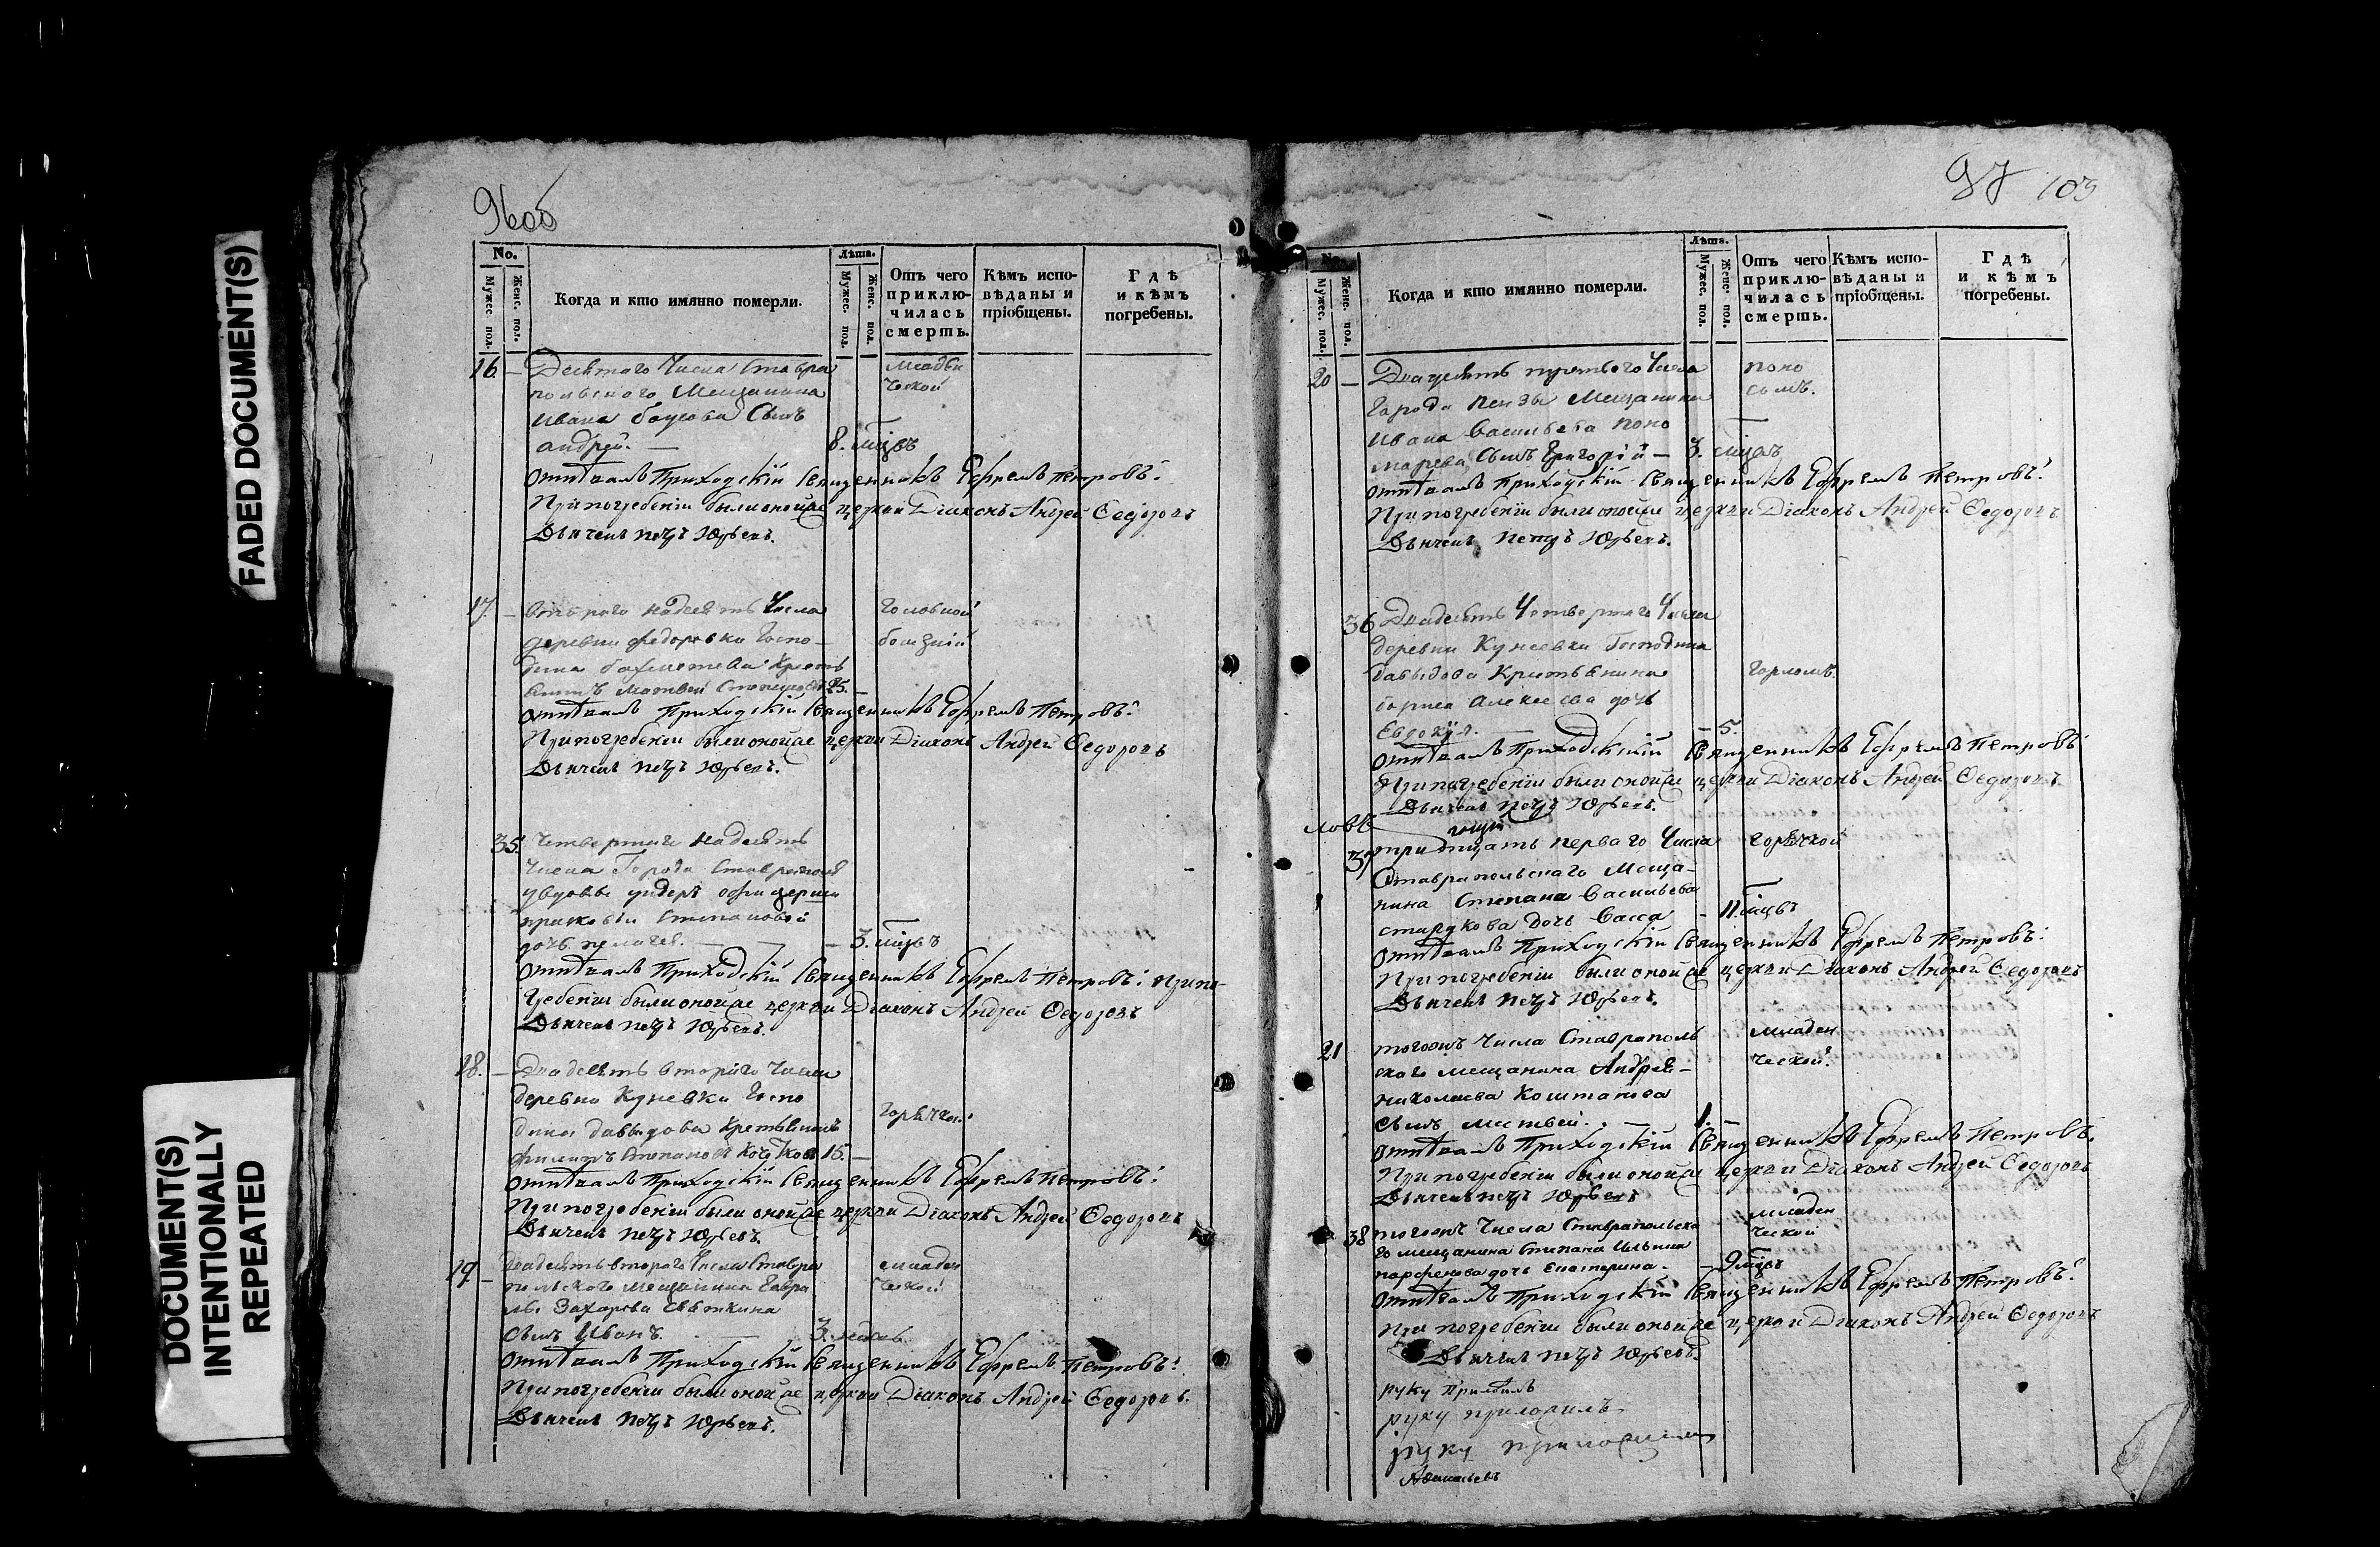 FADED DOCUMENT(S)
DOCUMENT(S)
INTENTIONALLY
REPEATED
96 об
No.
Мужес. пол.
Женс. пол.
Когда и кто имянно померли.
Лѣта.
Мужес. пол.
Женс. пол.
Отъ чего
приклю-
чилась
смерть.
Кѣмъ испо-
вѣданы и
пріобщены.
Гдѣ
и кѣмъ
погребены.
16. — Десятаго Числа Ставро
польского Мещанина
Ивана Сынъ
Андрей. — 8. мцъ
младен
ческой
отпѣвалъ Приходскій Священникъ Ефремъ Петровъ:
При погребеніи были оной же церкви Діаконъ Андрей Ѳедоровъ
Дьячекъ Петръ Юрьевъ.
17. — Второго надесять Числа
деревни Федоровки Госпо-
дина Бахметева Крестья
нинъ Матвей 25. —
Головной
болезній
отпѣвалъ Приходскій Священникъ Ефремъ Петровъ:
При погребеніи были оной же церкви Діаконъ Андрей Ѳедоровъ
Дьячекъ Петръ Юрьевъ.
35. Четвертаго надесять
Числа Города Ставрополя
у вдовы ундеръ офицерши
Прасковьи Степановой
дочь Пелагея. — 3. мцъ
отпѣвалъ Приходскій Священникъ Ефремъ Петровъ: при по-
гребеніи были оной же церкви Діаконъ Андрей Ѳедоровъ
Дьячекъ Петръ Юрьевъ.
18. — Двадесять второго Числа
деревни Кунеевки Госпо
дина Давыдова Крестьянинъ
Филипъ Степановъ 15. —
Горячкой
отпѣвалъ Приходскій Священникъ Ефремъ Петровъ:
При погребеніи были оной же церкви Діаконъ Андрей Ѳедоровъ
Дьячекъ Петръ Юрьевъ.
19. — Двадесять второго Числа Ставро
польского Мещанина Гаври
лы Захарова
Сынъ Иванъ. — 3.
младен
ческой
отпѣвалъ Приходскій Священникъ Ефремъ Петровъ:
При погребеніи были оной же церкви Діаконъ Андрей Ѳедоровъ.
Дьячекъ Петръ Юрьевъ.
97 103
No.
Мужес. пол.
Женс. пол.
Когда и кто имянно померли.
Лѣта.
Мужес. пол.
Женс. пол.
Отъ чего
приклю-
чилась
смерть.
Кѣмъ испо-
вѣданы и
пріобщены.
Гдѣ
и кѣмъ
погребены.
20 — Двадесять третьего Числа
Города Пензы Мещанина
Ивана Васильева Поно
марева Сынъ Григорій — 3. мцъ
поно
сомъ.
отпѣвалъ Приходскій Священникъ Ефремъ Петровъ:
При погребеніи были оной же церкви Діаконъ Андрей Ѳедоровъ
Дьячекъ Петръ Юрьевъ.
36 Двадесять Четвертаго Числа
деревни Кунеевки Господина
Давыдова Крестьянина
Бориса Алексеева дочь
Евдокія. — 5.
Горломъ.
отпѣвалъ Приходскій Священникъ Ефремъ Петровъ
При погребеніи были оной же церкви Діаконъ Андрей Ѳедоровъ.
Дьячекъ Петръ Юрьевъ.
37 тридцать перваго Числа
Ставропольскаго Меща-
нина Степана Васильева
Старкова Дочь Васса — 11. мцъ
горячкой
отпѣвалъ Приходскій Священникъ Ефремъ Петровъ:
При погребеніи были оной же церкви Діаконъ Андрей Ѳедоровъ
Дьячекъ Петръ Юрьевъ.
21 тогожъ Числа Ставрополь
ского мещанина Андрея
Николаева
Сынъ Матвей. — 1. —
младен
ческой.
отпѣвалъ Приходскій Священникъ Ефремъ Петровъ.
При погребеніи были оной же церкви Діаконъ Андрей Ѳедоровъ
Дьячекъ Петръ Юрьевъ
38 тогожъ Числа Ставропольско
го мещанина Степана Ильина
Парфенова дочь Екатерина. — 9 мцъ
младен
ческой
отпѣвалъ Приходскій Священникъ Ефремъ Петровъ:
При погребеніи были оной же церкви Діаконъ Андрей Ѳедоровъ
Дьячекъ Петръ Юрьевъ.
руку
руку приложилъ
руку приложилъ